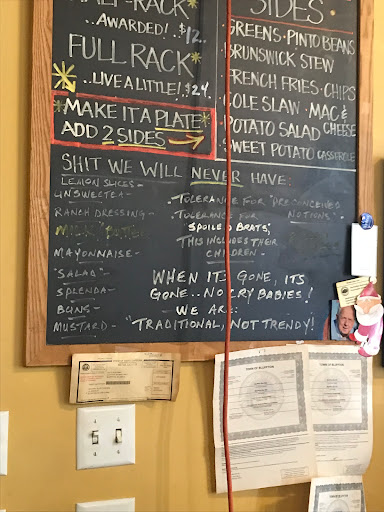 HALF-RACK*
..AWARDED! . $12.
FULL RACK*
..LIVE A LITTLE!. $24.
*MAKE IT A PLATE*
ADD 2 SIDES
SIDES
GREENS · PINTO BEANS
BRUNSWICK STEW
FRENCH FRIES · CHIPS
COLE SLAW · MAC & CHEESE
POTATO SALAD
SWEET POTATO CASSEROLE
SHIT WE WILL NEVER HAVE:
LEMON SLICES-
UNSWEETEA-
RANCH DRESSING-
MAYONNAISE-
"SALAD"-
SPLENDA-
BUNS-
MUSTARD-
.TOLERANCE FOR "PRECONCEIVED NOTIONS".
.TOLERANCE FOR
"SPOILED BRATS",
THIS INCLUDES THEIR
CHILDREN-
WHEN IT'S GONE, ITS
GONE...NO CRY BABIES!
WE ARE:
"TRADITIONAL, NOT TRENDY!
TOWN OF BLUFFTON
TOWN OF BLUFFTON